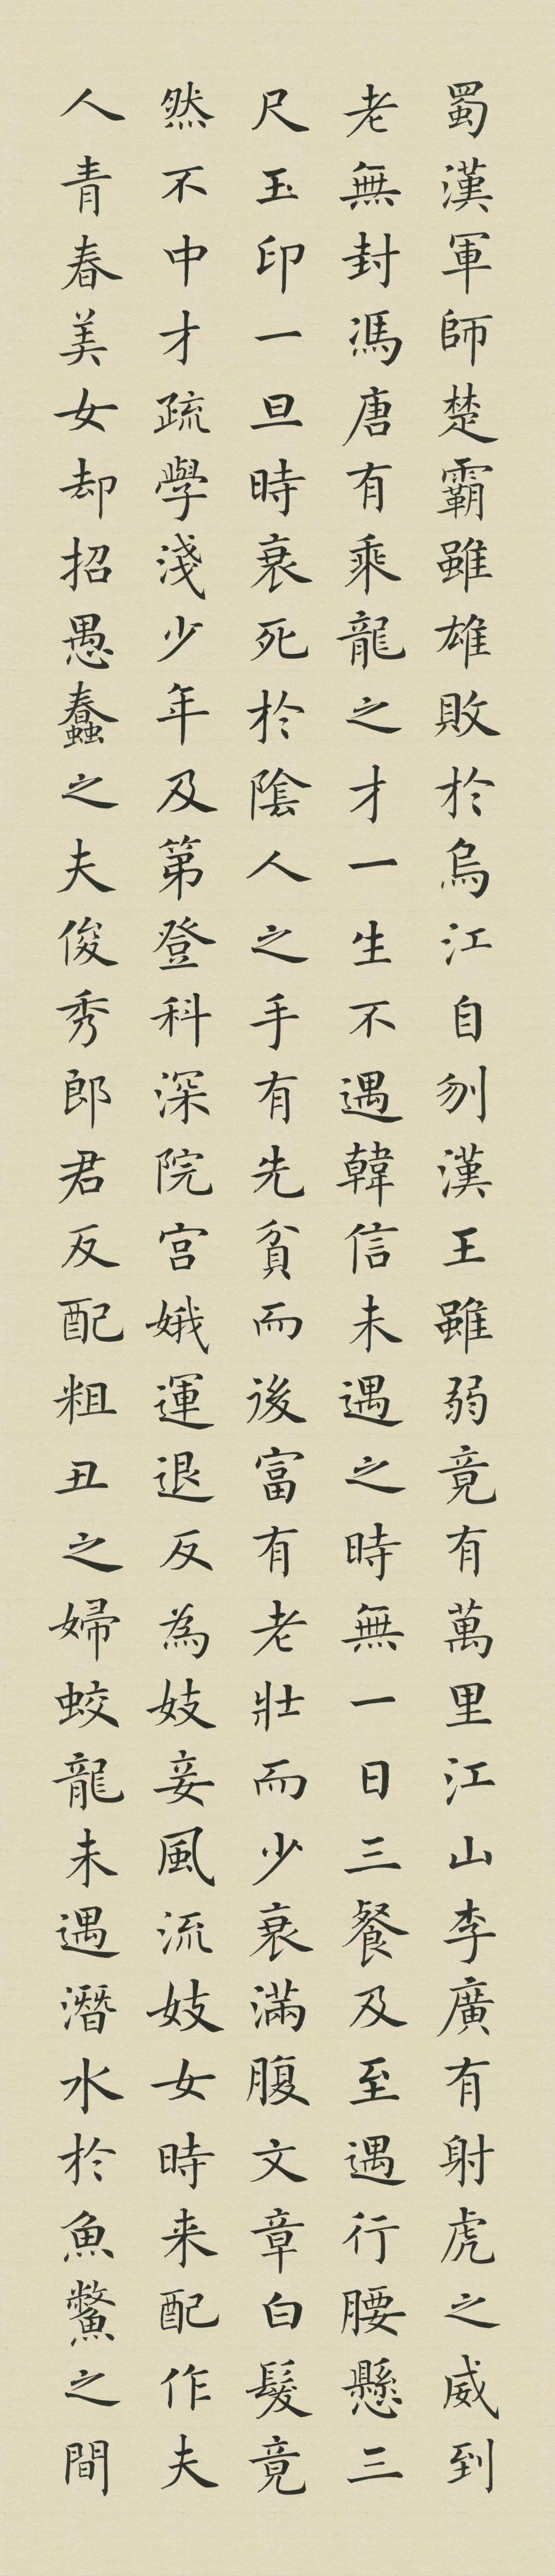 蜀漢軍師楚霸雖雄敗於烏江自刎漢王雖弱竟有萬里江山李廣有射虎之威到
老無封馮唐有乘龍之才一生不遇韓信未遇之時無一日三餐及至遇行腰懸三
尺玉印一旦時衰死於陰人之手有先貧而後富有老壯而少衰滿腹文章白髮竟
然不中才疏學淺少年及第登科深院宮娥運退反為妓妾風流妓女時来配作夫
人青春美女却招愚蠢之夫俊秀郎君反配粗丑之婦蛟龍未遇潛水於魚鱉之間